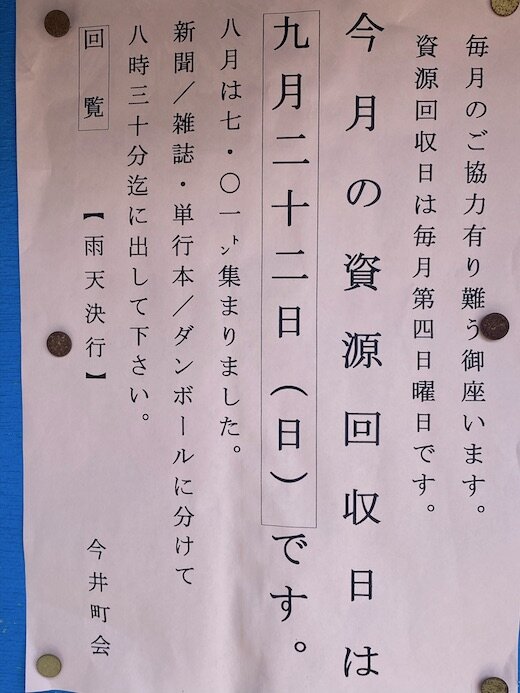 毎月のご協力有り難う御座います。
資源回収日は毎月第四日曜日です。
今月の資源回収日は
九月二十二日(日)です。
八月は七・〇一㌧集まりました。
新聞/雑誌・単行本/ダンボールに分けて
八時三十分迄に出して下さい。
回覧 【雨天決行】 今井町会